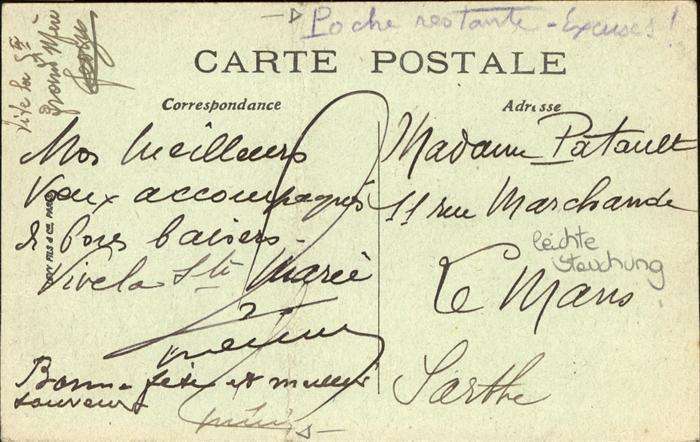 Poche restante - Excuses!
Vive la Ste
grand Mère
CARTE POSTALE
Correspondance
Adresse
Nos meilleurs
Vœux accompagnés
de bons baisers.
Vive la Ste Marie
Bonne fête et meilleur
souvenir
Madame Patault
11 rue Marchande
Le Mans
Sarthe
leichte
Stauchung